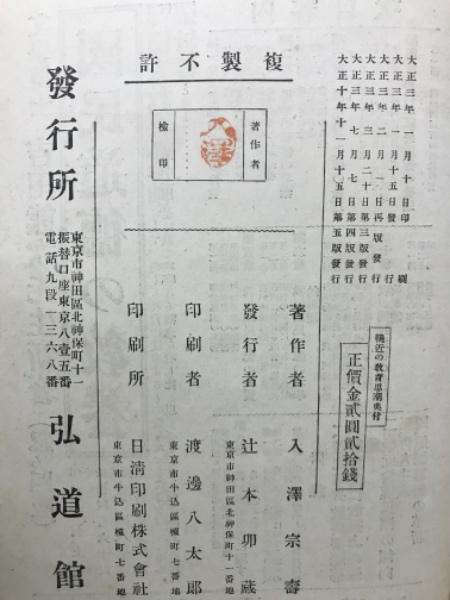 大正三年一月十日印刷
大正三年一月十五日發行
大正三年二月一日再版發行
大正三年三月二十日第三版發行
大正三年七月七日第四版發行
大正十年十一月十五日第五版發行
輓近の教育思潮奥付
正價金貳圓貳拾錢
複製不許
著作者
檢印
入澤
著作者 入澤宗壽
發行者 辻本卯藏
東京市神田區北神保町十一番地
印刷者 渡邊八太郎
東京市牛込區榎町七番地
印刷所 日清印刷株式會社
東京市牛込區榎町七番地
發行所 弘道館
東京市神田區北神保町十一
振替口座東京八壹五番
電話九段一三六八番